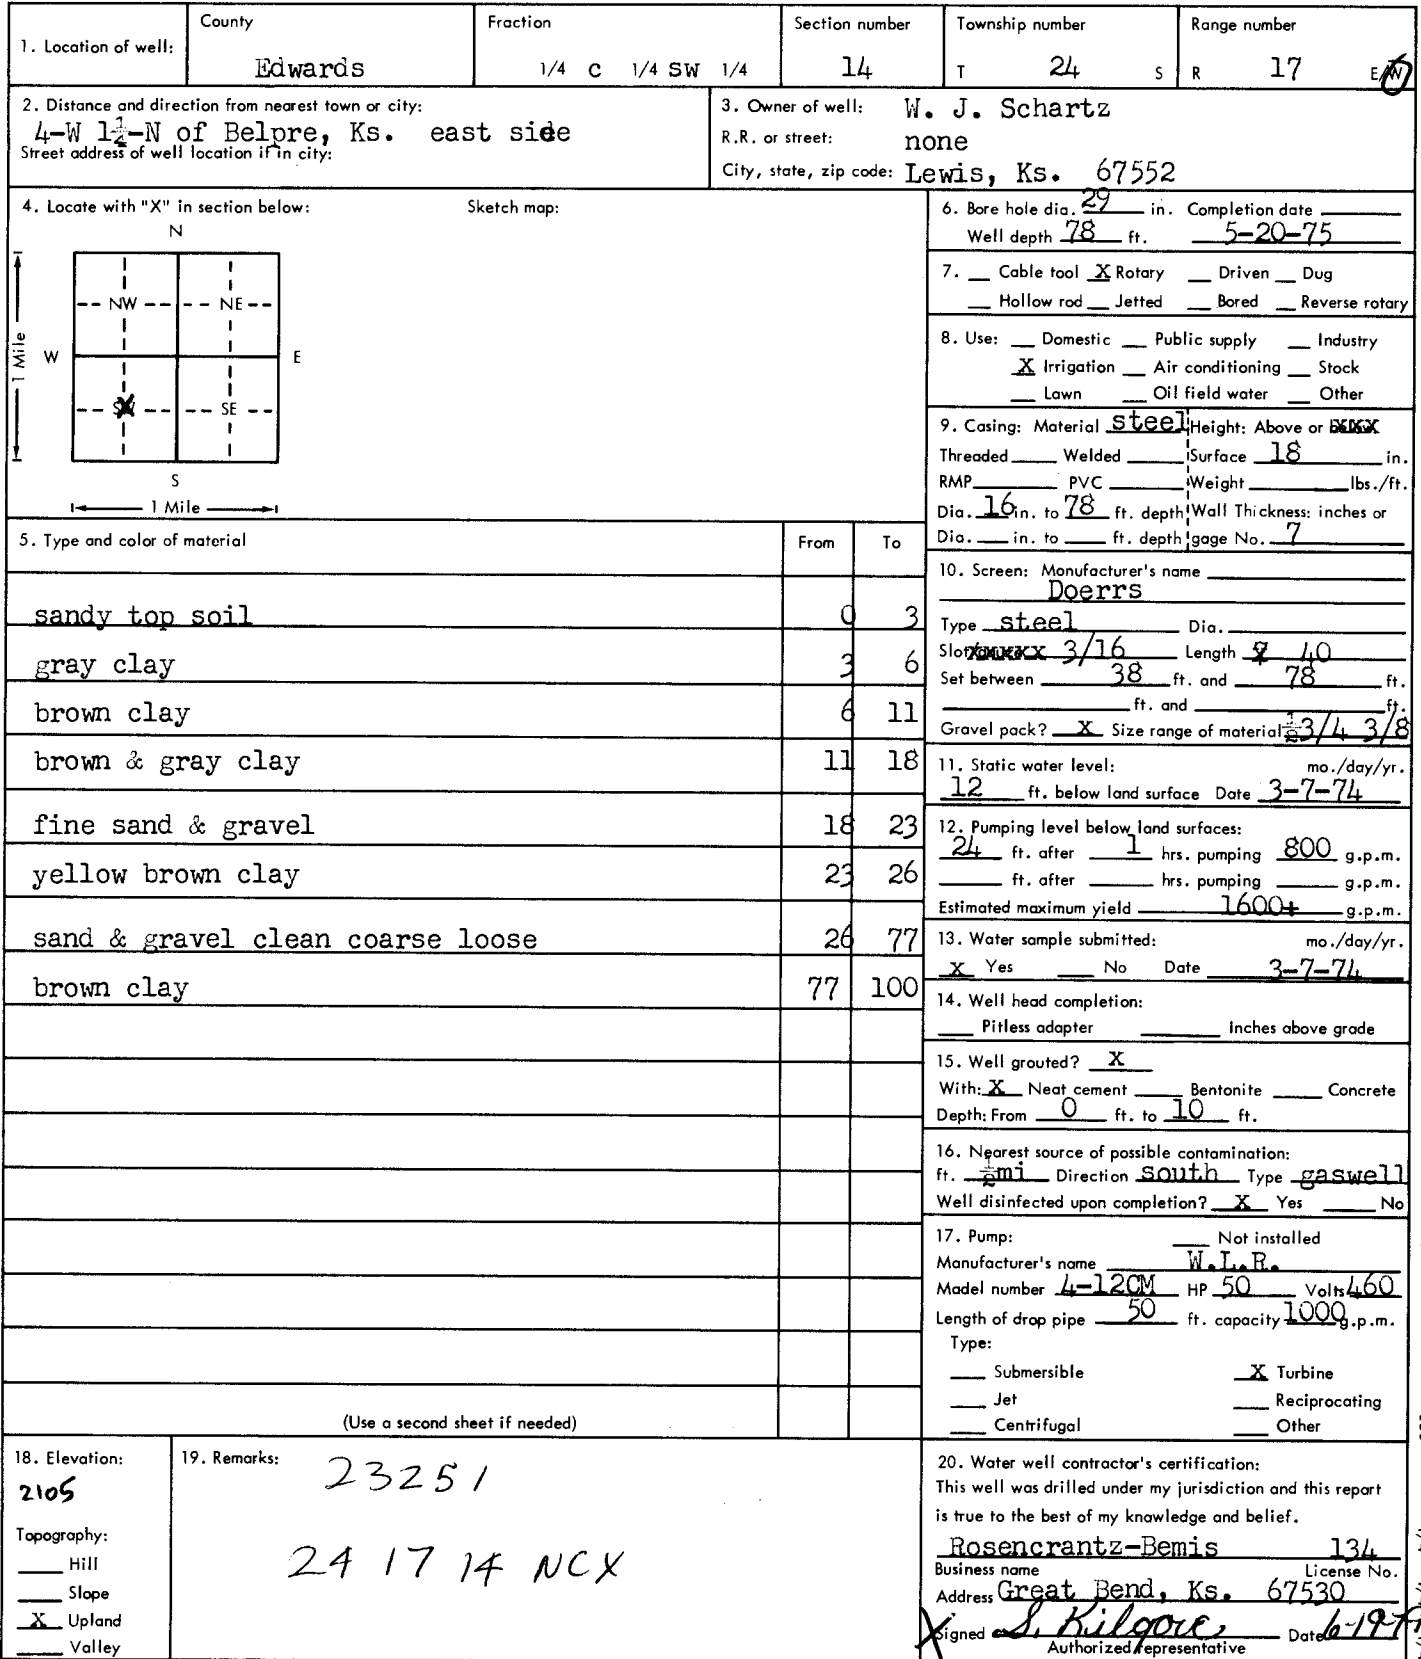 1. Location of well:
County
Edwards
Fraction
1/4 C 1/4 SW 1/4
Section number
14
Township number
T 24 S
Range number
R 17 E/W
2. Distance and direction from nearest town or city:
4-W 1½-N of Belpre, Ks. east side
Street address of well location if in city:
3. Owner of well: W. J. Schartz
R.R. or street: none
City, state, zip code: Lewis, Ks. 67552
4. Locate with "X" in section below:
Sketch map:
N
NW NE
W E
SW SE
S
1 Mile
1 Mile
5. Type and color of material From To
sandy top soil 0 3
gray clay 3 6
brown clay 6 11
brown & gray clay 11 18
fine sand & gravel 18 23
yellow brown clay 23 26
sand & gravel clean coarse loose 26 77
brown clay 77 100
(Use a second sheet if needed)
6. Bore hole dia. 29 in. Completion date
Well depth 78 ft. 5-20-75
7. Cable tool X Rotary Driven Dug
Hollow rod Jetted Bored Reverse rotary
8. Use: Domestic Public supply Industry
X Irrigation Air conditioning Stock
Lawn Oil field water Other
9. Casing: Material steel Height: Above or
Threaded Welded Surface 18 in.
RMP PVC Weight lbs./ft.
Dia. 16 in. to 78 ft. depth Wall Thickness: inches or
Dia. in. to ft. depth gage No. 7
10. Screen: Manufacturer's name
Doerrs
Type steel Dia.
Slot 3/16 Length 40
Set between 38 ft. and 78 ft.
ft. and ft.
Gravel pack? X Size range of material ½ 3/4 3/8
11. Static water level: mo./day/yr.
12 ft. below land surface Date 3-7-74
12. Pumping level below land surfaces:
24 ft. after 1 hrs. pumping 800 g.p.m.
ft. after hrs. pumping g.p.m.
Estimated maximum yield 1600+ g.p.m.
13. Water sample submitted: mo./day/yr.
X Yes No Date 3-7-74
14. Well head completion:
Pitless adapter Inches above grade
15. Well grouted? X
With: X Neat cement Bentonite Concrete
Depth: From 0 ft. to 10 ft.
16. Nearest source of possible contamination:
ft. ½mi Direction south Type gaswell
Well disinfected upon completion? X Yes No
17. Pump: Not installed
Manufacturer's name W.L.R.
Madel number 4-12CM HP 50 Volts 460
Length of drop pipe 50 ft. capacity 1000 g.p.m.
Type:
Submersible X Turbine
Jet Reciprocating
Centrifugal Other
18. Elevation:
2105
Topography:
Hill
Slope
X Upland
Valley
19. Remarks: 23251
24 17 14 NCX
20. Water well contractor's certification:
This well was drilled under my jurisdiction and this report
is true to the best of my knowledge and belief.
Rosencrantz-Bemis 134
Business name License No.
Address Great Bend, Ks. 67530
X Signed S. Kilgore Date
Authorized representative